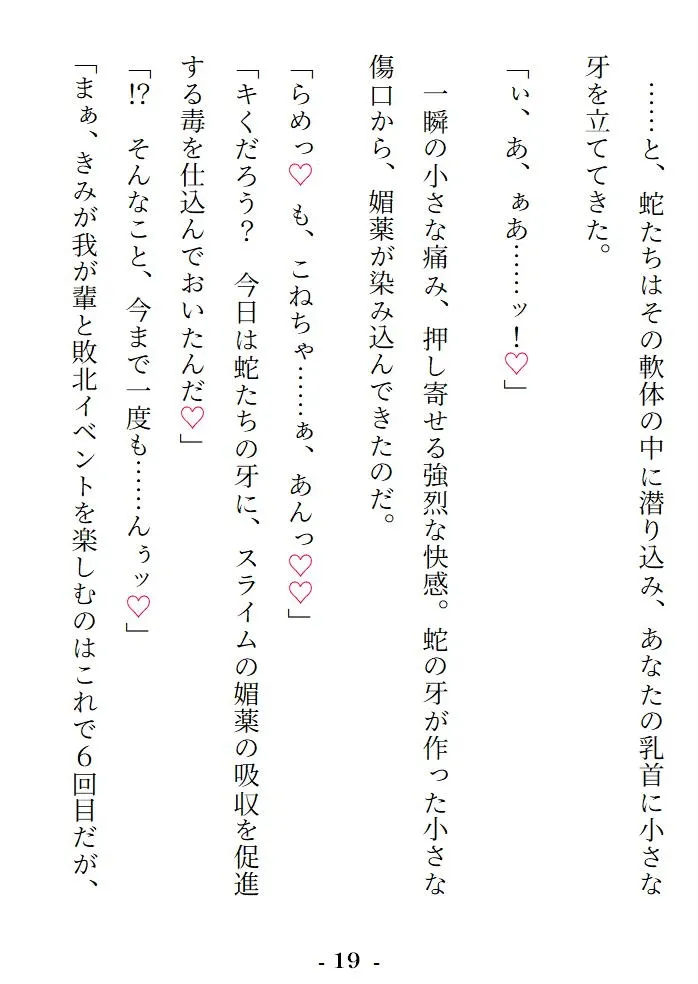 ……と、蛇たちはその軟体の中に潜り込み、あなたの乳首に小さな
牙を立ててきた。
「ぃ、あ、ぁあ……ッ！♡」
　一瞬の小さな痛み、押し寄せる強烈な快感。蛇の牙が作った小さな
傷口から、媚薬が染み込んできたのだ。
「らめっ♡ も、こねちゃ……ぁ、あんっ♡♡」
「キくだろう？　今日は蛇たちの牙に、スライムの媚薬の吸収を促進
する毒を仕込んでおいたんだ♡」
「!?　そんなこと、今まで一度も……んぅッ♡」
「まぁ、きみが我が輩と敗北イベントを楽しむのはこれで６回目だが、
- 19 -